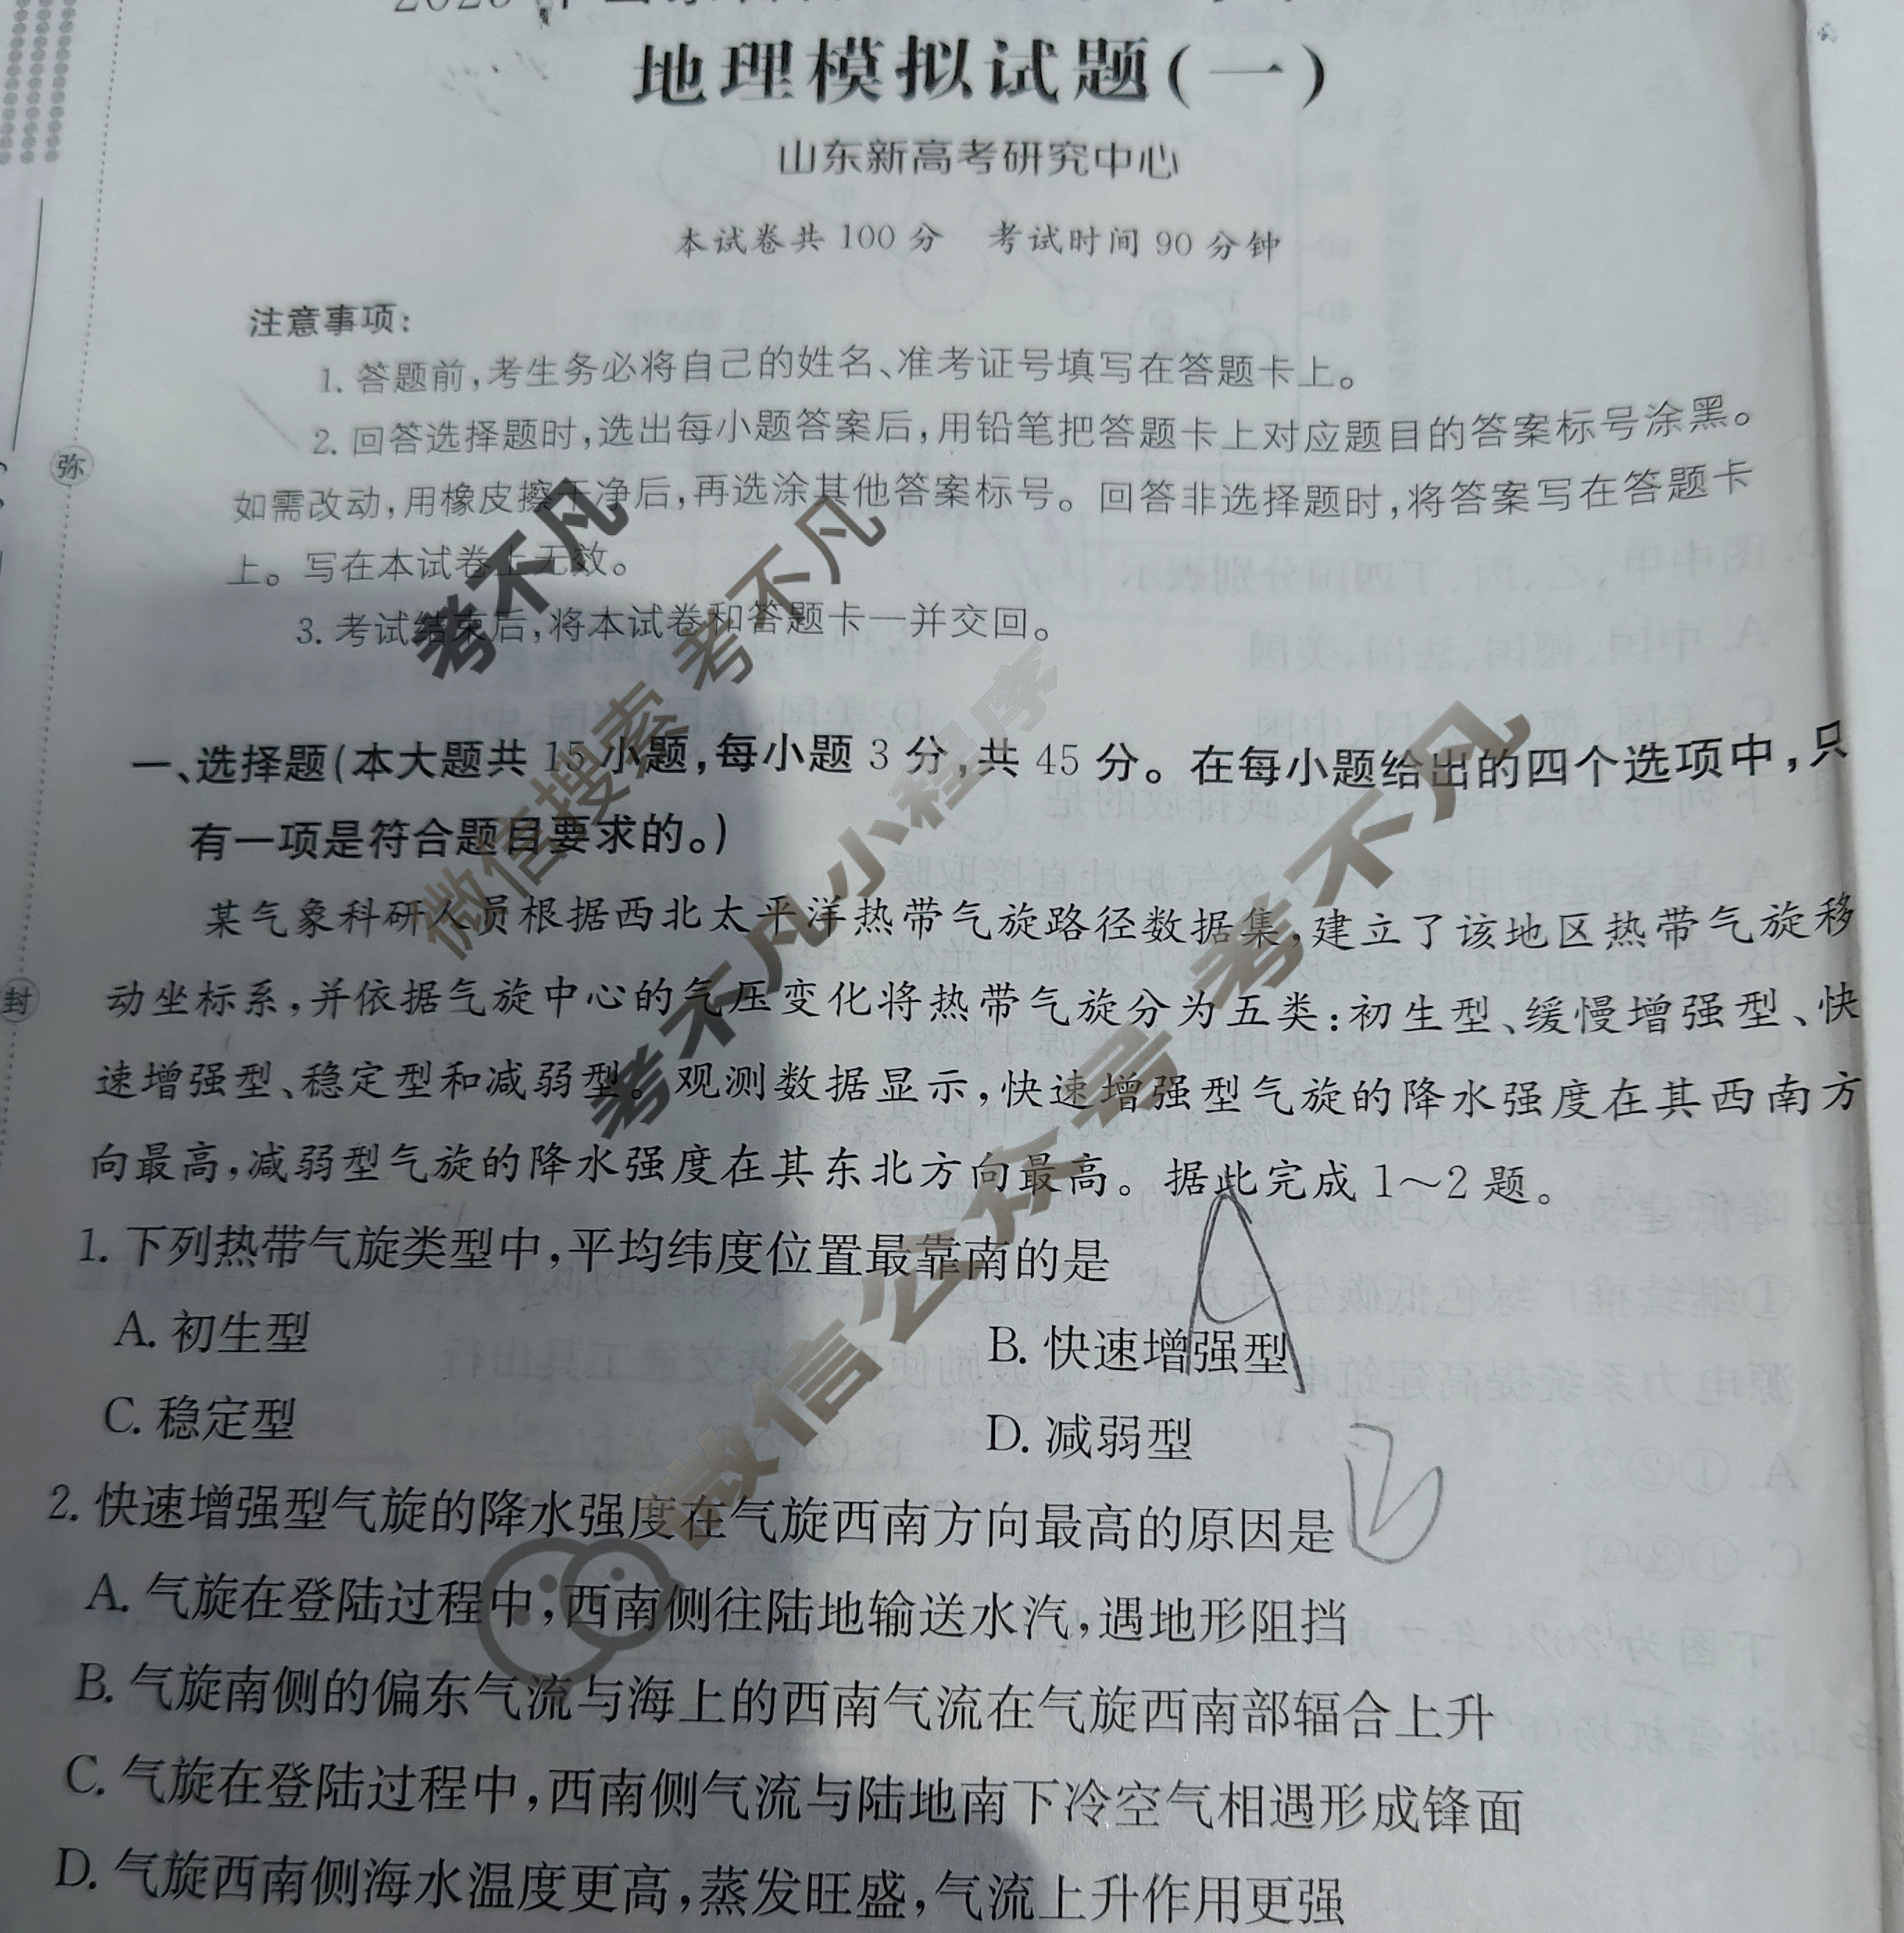 地理模拟试题(一)
山东新高考研究中心
本试卷共 100 分 考试时间 90 分钟
注意事项:
1. 答题前,考生务必将自己的姓名、准考证号填写在答题卡上。
2. 回答选择题时,选出每小题答案后,用铅笔把答题卡上对应题目的答案标号涂黑。
如需改动,用橡皮擦干净后,再选涂其他答案标号。回答非选择题时,将答案写在答题卡
上。写在本试卷上无效。
3. 考试结束后,将本试卷和答题卡一并交回。
一、选择题(本大题共 15 小题,每小题 3 分,共 45 分。在每小题给出的四个选项中,只
有一项是符合题目要求的。)
某气象科研人员根据西北太平洋热带气旋路径数据集,建立了该地区热带气旋移
动坐标系,并依据气旋中心的气压变化将热带气旋分为五类:初生型、缓慢增强型、快
速增强型、稳定型和减弱型。观测数据显示,快速增强型气旋的降水强度在其西南方
向最高,减弱型气旋的降水强度在其东北方向最高。据此完成 1～2 题。
1. 下列热带气旋类型中,平均纬度位置最靠南的是
A
A. 初生型
B. 快速增强型
C. 稳定型
D. 减弱型
2. 快速增强型气旋的降水强度在气旋西南方向最高的原因是
A. 气旋在登陆过程中,西南侧往陆地输送水汽,遇地形阻挡
B. 气旋南侧的偏东气流与海上的西南气流在气旋西南部辐合上升
C. 气旋在登陆过程中,西南侧气流与陆地南下冷空气相遇形成锋面
D. 气旋西南侧海水温度更高,蒸发旺盛,气流上升作用更强
弥
封
考不凡
微信搜索 考不凡
考不凡小程序
微信公众号 考不凡